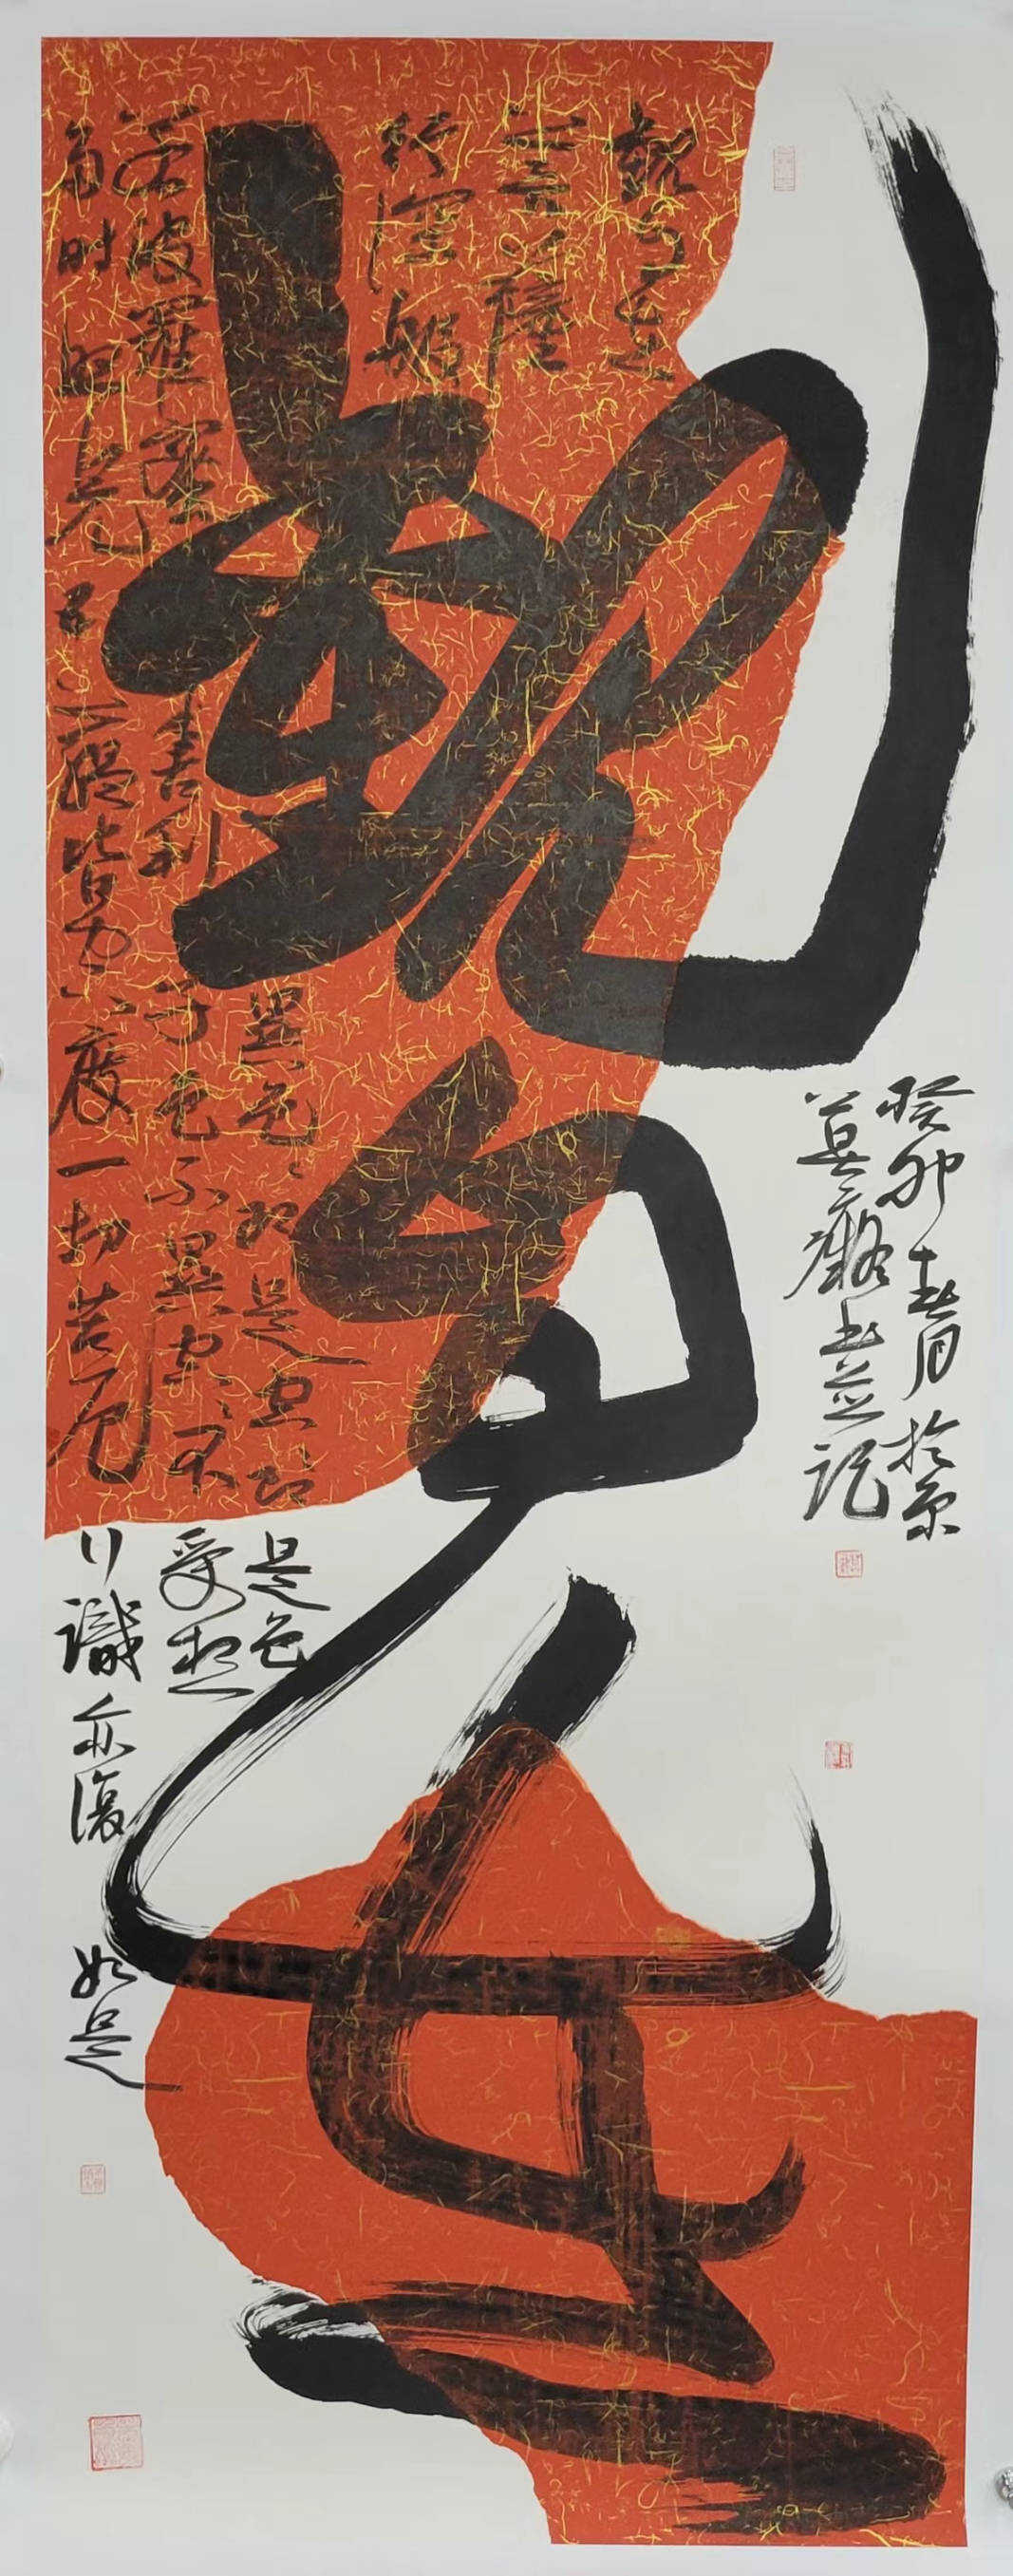 觀色空
觀自在
菩薩
行深般
若波羅蜜
多時照見五蘊皆空度一切苦厄
舍利子色不異空、不
異色、即是空、即
是色
受想
行識亦復如是
癸卯春月於京
書並記